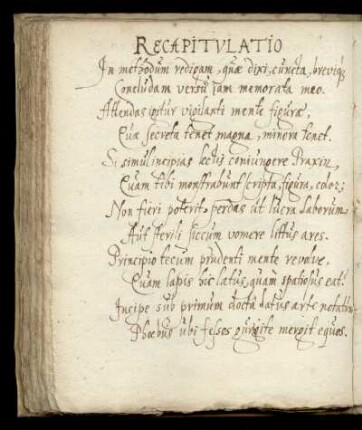 RECAPITVLATIO
In methodum redigam, quæ dixi, cuncta, breviq;
Concludam versu iam memorata meo.
Attendas igitur vigilanti mente figuræ,
Quæ secreta tenet magna, minora tenet.
Si simul incipias lectis coniungere Praxin,
Quam tibi monstrabunt scripta, figura, color;
Non fieri poterit, perdas ut lucra laborum,
Aut sterili siccum vomere littus ares.
Principio tecum prudenti mente revolve,
Quam lapis hic latus, quam spatiosus eat.
Incipe sub primum docta latus arte notatum
Phœbus ubi fessos gurgite mergit equos.